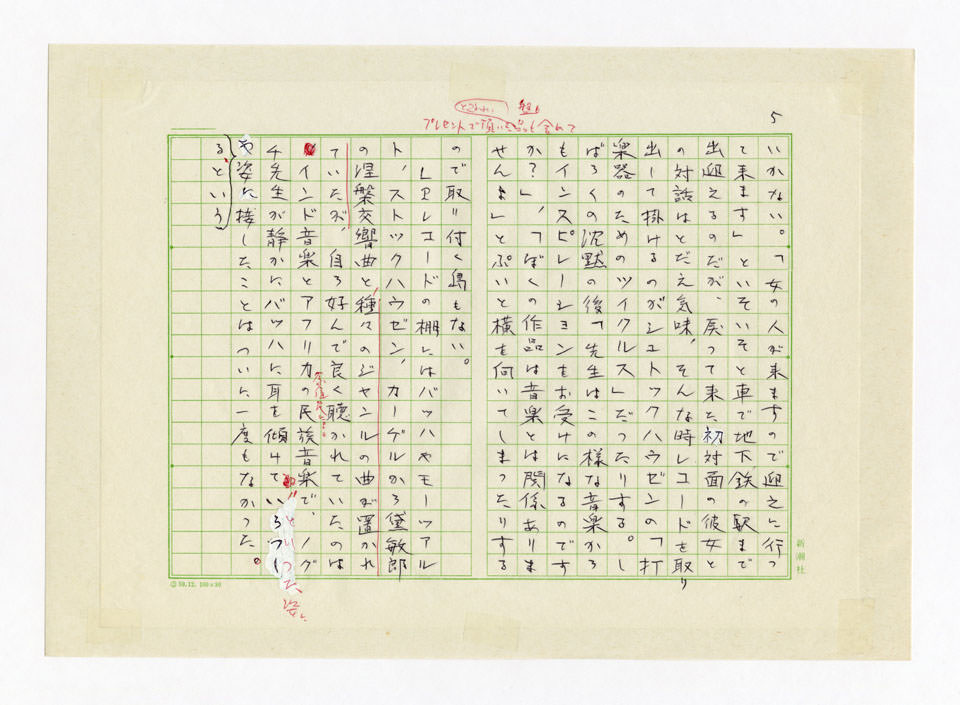 5
どこかれい
盤も
プレセントで頂いた品も含めて
いかない。「女の人が来ますので迎えに行っ
て来ます」といそいそと車で地下鉄の駅まで
出迎えるのだが、戻って来た初対面の彼女と
の対話はとだえ気味、そんな時レコードを取り
出して掛けるのがシュトックハウゼンの「打
楽器のためのツイクルス」だったりする。し
ばらくの沈黙の後「先生はこの様な音楽から
もインスピレーションをお受けになるのです
か?」、「ぼくの作品は音楽とは関係ありま
せんよ」とぷいと横を向いてしまったりする
ので取り付く島もない。
LPレコードの棚にはバッハやモーツアル
ト、ストックハウゼン、カーゲルから黛敏郎
の涅槃交響曲と種々のジャンルの曲が置かれ
ていたが、自ら好んで良く聴かれていたのは
インド音楽とアフリカの民族音楽で、ノグ
チ先生が静かにバッハに耳を傾けて
といった
姿に
や姿に接したことはついに一度もなかった。
るという
新潮社